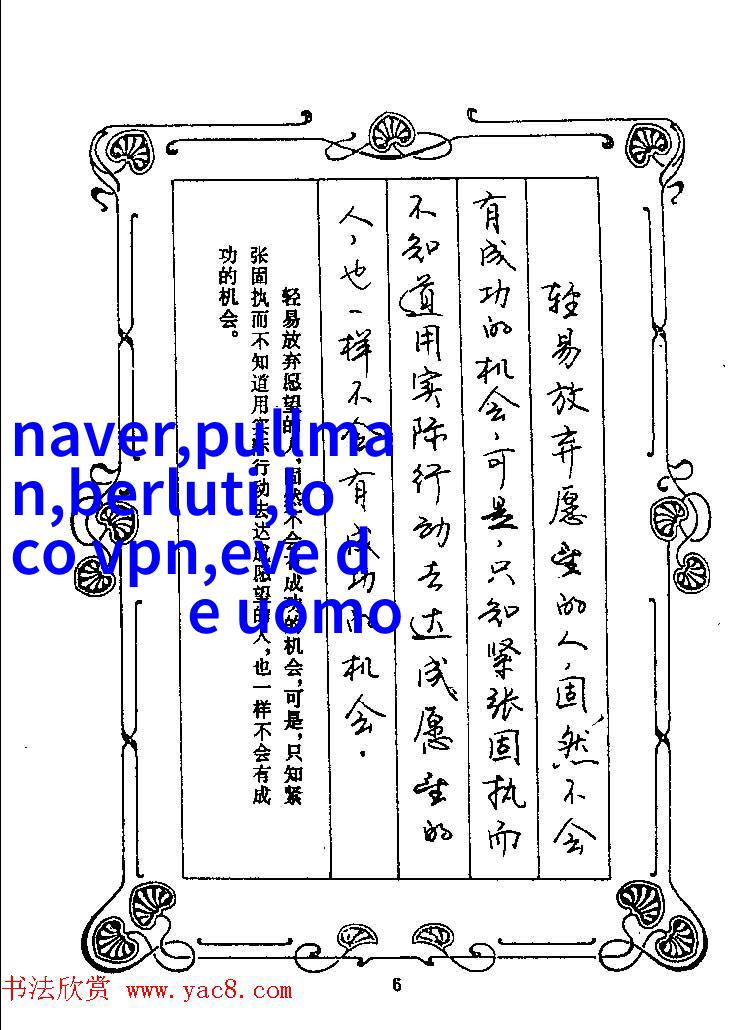 轻易放弃愿望的人，固然不会
有成功的机会，可是，只知紧张固执而
不知道用实际行动去达成愿望的
人，也一样不会有成功的机会．
轻易放弃愿望的人，固然不会有成功的机会，可是，只知紧
张固执而不知道用实际行动去达成愿望的人，也一样不会有成
功的机会。
naver,pullma
n,berluti,lo
co vpn,eve d
e uomo
6
书法欣赏 www.yac8.com